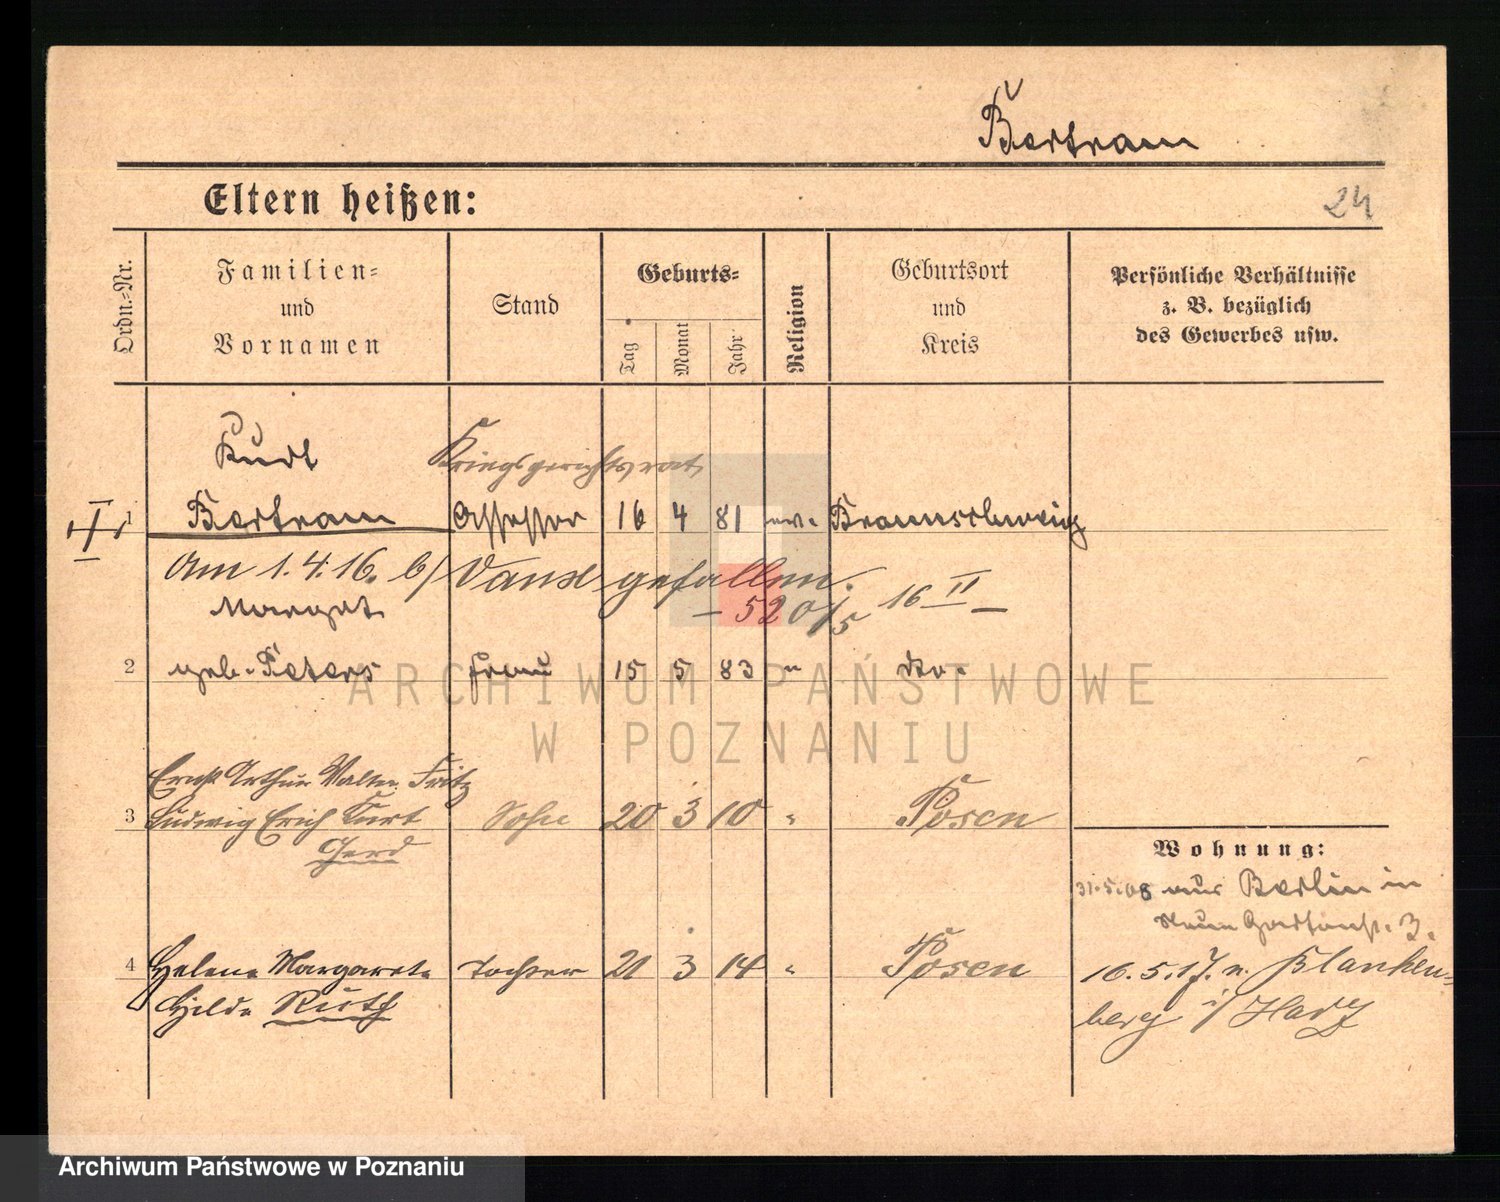 Bertram
Eltern heißen:
24
Ordn.-Nr.
Familien-
und
Vornamen
Stand
Geburts-
Tag
Monat
Jahr
Religion
Geburtsort
und
Kreis
Persönliche Verhältnisse
z. B. bezüglich
des Gewerbes usw.
Kurt
Kriegsgerichtsrat
1 Bertram Assessor 16 4 81 ev. Braunschweig
Am 1. 4. 16. b/ Vaux gefallen.
Margret – 520/5 16 II –
2 geb. Peters Frau 15 5 83 " do.
ARCHIWUM PAŃSTWOWE
W POZNANIU
Ernst Arthur Walter Fritz
3 Ludwig Erich Kurt Sohn 20 3 10 " Posen
Gerd
Wohnung:
31.5.08 aus Berlin in
Neue Gartenstr. 3.
4 Helene Margarete Tochter 21 3 14 " Posen
16. 5. 17. n. Blanken-
Hilde Ruth
berg i/ Harz
Archiwum Państwowe w Poznaniu